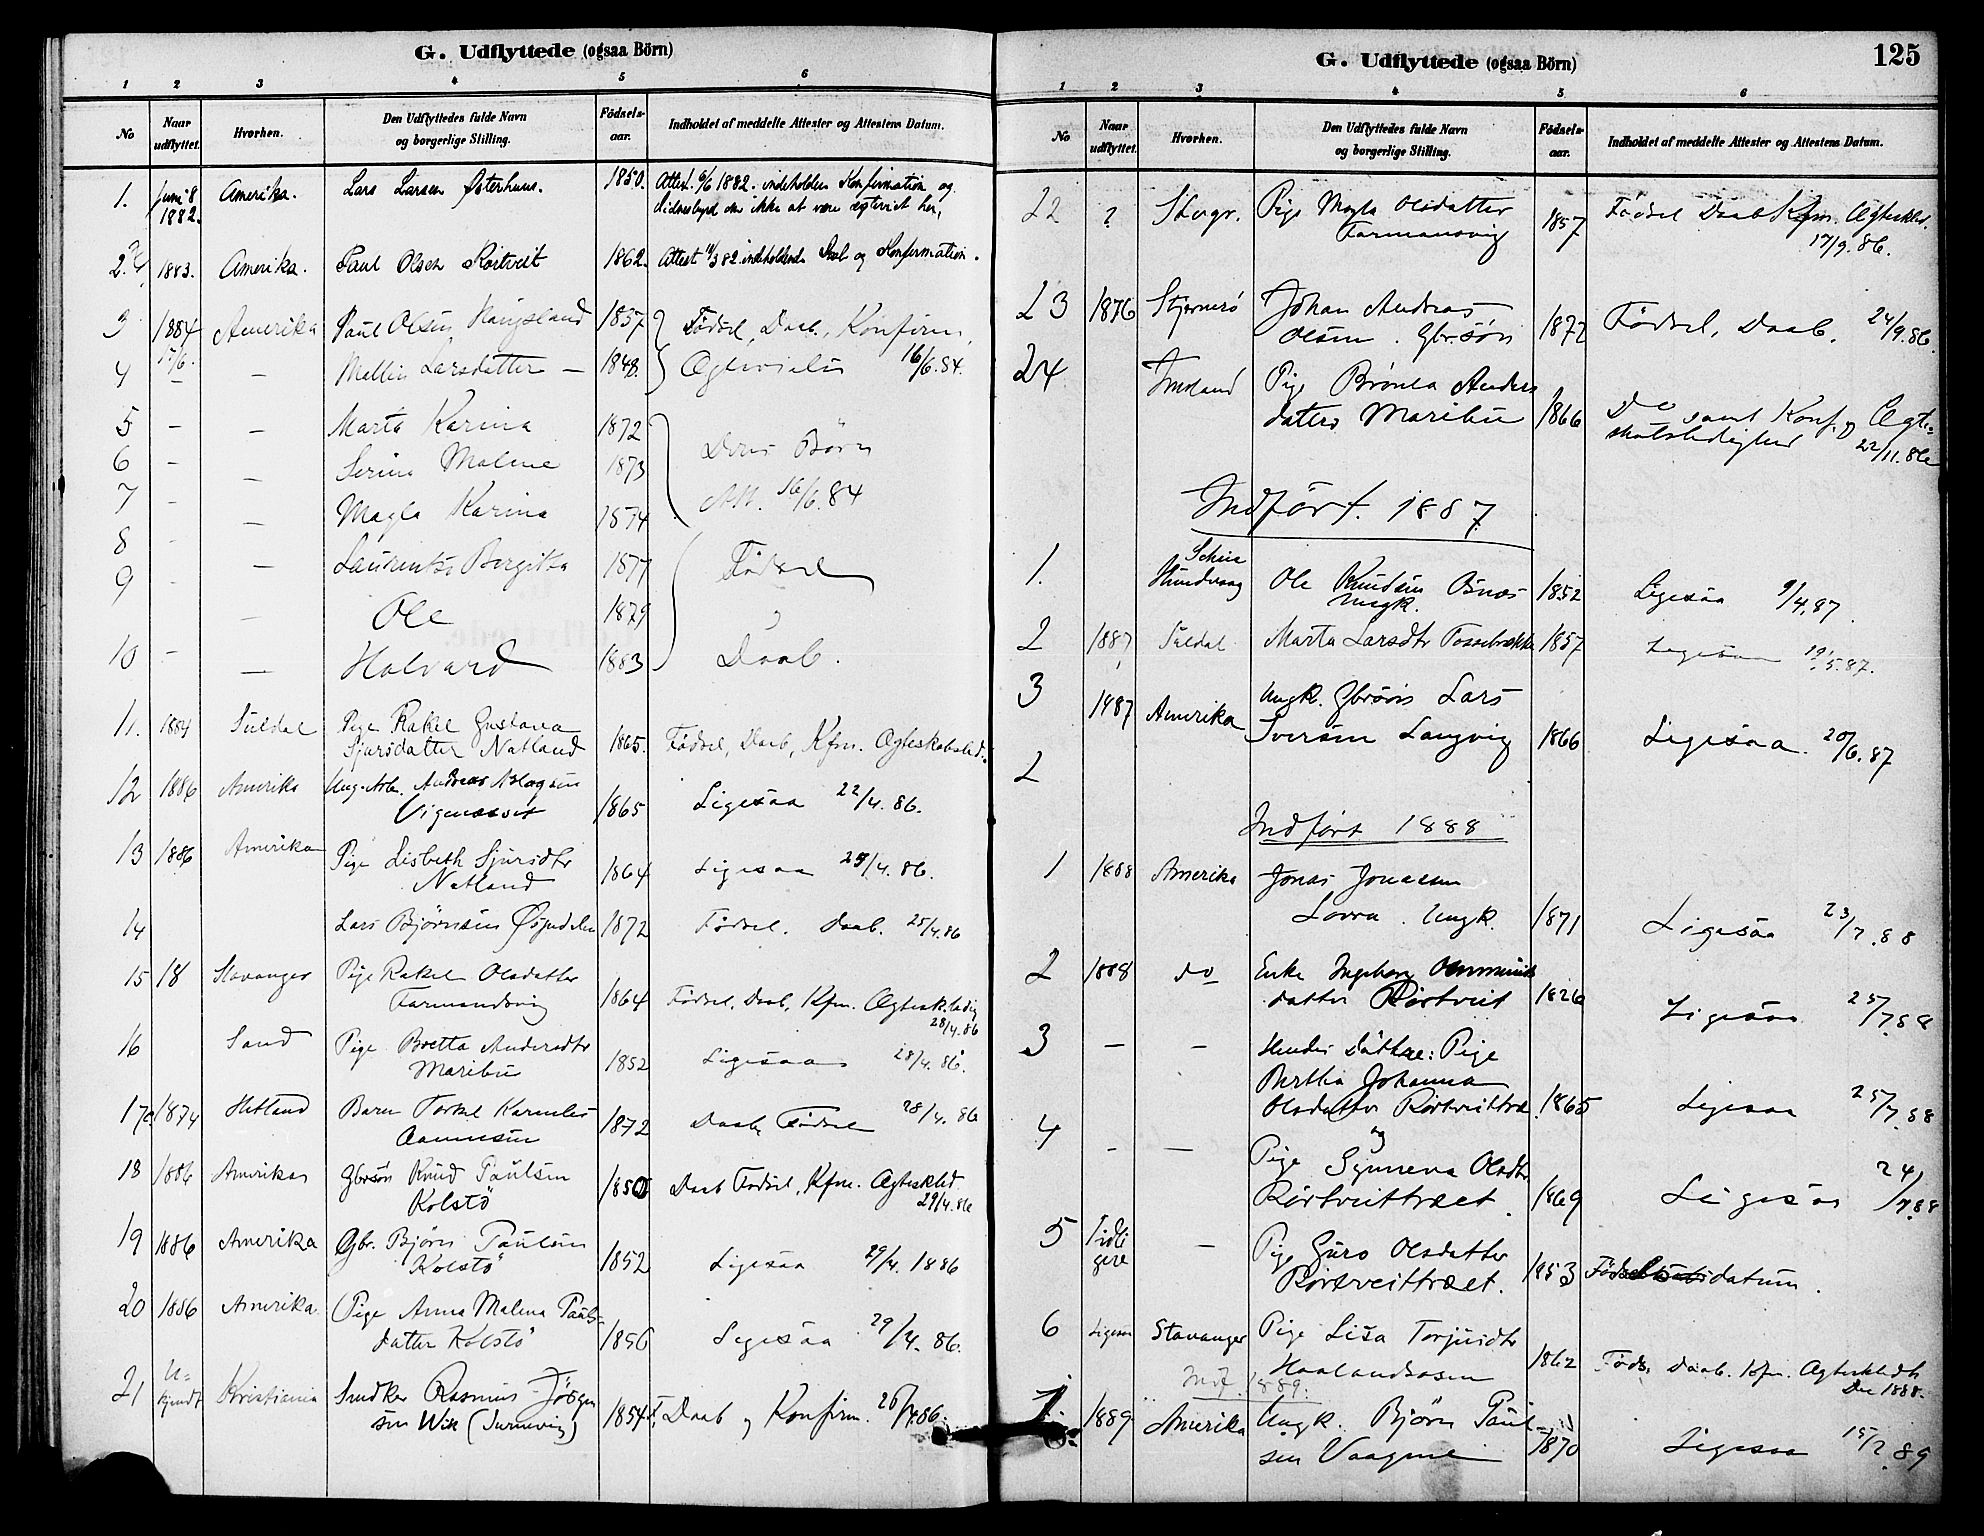 G. Udflyttede (ogsaa Börn)
1 2 3 4 5 6
No Naar udflyttet. Hvorhen. Den Udflyttedes fulde Navn og borgerlige Stilling. Födsels-aar. Indholdet af meddelte Attester og Attestens Datum.
1. Juni 8 1882. Amerika. Lars Larsen Østerhuus. 1850. Attest. 6/6 1882. indeholder Konfirmation og
ikke at være her,
2. 1883. Amerika. Paul Olsen Rörtveit 1862. Attest 11/3 82. indholdende Daab og Konfirmation.
3 1884 17/6. Amerika Paul Olsen 1857 Födsel, Daab, Konfirm,
4 — — Larsdatter — 1848. 16/6.84.
5 — — Marta Karina 1872
6 — — Serina Malene 1873 Deres Börn
7 — — Magla Karina 1874 Att. 16/6.84
8 — — Bergitha 1877 Födsel
9 — — Ole 1879 o
10 — — Halvard 1883 Daab.
11. 1884 Suldal Pige Rakel Gustava
Sjursdatter Natland 1865. Födsel, Daab, Kfm. Ægteskabsled.
12 1886 Amerika Ung. Arb. Andreas Aslagsen
1865 Ligesaa 22/4. 86.
13 1886 Amerika Pige Lisbeth Sjursdtr
Natland 1864 Ligesaa 25/4. 86.
14 Lars Björnsen 1872 Födsel. Daab. 25/4.86
15 18 Stavanger Pige Rakel Olsdatter
Farmandsvig 1864 Födsel, Daab, Kfm. Ægtesk.ledig
28/4.86
16 Sand Pige Andersdtr
Maribu 1852 Ligesaa 28/4. 86.
17 1874 Hetland Barn Torkel Karneli
Aamunsen 1872 Daab, Födsel 28/4. 86
18 1886 Amerika Gbrsön Knud Paulsen
Kolstö 1850 Daab Födsel, Kfm. Ægteskled
29/4.86
19 1886 Amerika Gbr. Björn Paulsen
Kolstö 1852 Ligesaa 29/4. 1886
20 1886 Amerika. Pige Anna Malena Pauls-
datter Kolstö 1856 Ligesaa 29/4. 86.
21 U-kjendt Kristiania Snedker Rasmus Jörgen
sen Wik 1854 F, Daab og Konfirm.
G. Udflyttede (ogsaa Börn) 125
1 2 3 4 5 6
No Naar udflyttet. Hvorhen. Den Udflyttedes fulde Navn og borgerlige Stilling. Födsels-aar. Indholdet af meddelte Attester og Attestens Datum.
22 ? Stvgr. Pige Magla Olsdatter
Farmansvig 1857 Födsel Daab Kfm. Ægteskled.
17/9.86.
23 1876 Stjernerö Johan Andreas
Olsen. Gbrsön 1872 Födsel, Daab. 24/9.86.
24 Imsland Pige Anders
datter Maribu 1866 Do samt Konf. og Ægte-
skabsledighed 22/11.86
Indfört 1887
1. Hundvaag Ole Knudsen Osnes
Ungk. 1852 Ligesaa 9/4.87
2 1887 Suldal Marta Larsdtr Fossebrække 1857 Ligesaa 19/5.87.
3 1887 Amerika Ungk. Gbrsön Lars
Iversen Langvig 1866 Ligesaa 20/6.87
2
Indfört 1888
1 1888 Amerika Jonas Jonasen
Lovra. Ungk. 1871 Ligesaa 23/7.88
2 1888 do Enke Ingeborg
datter Rörtveit 1826 Ligesaa 25/7.88
3 — — Hendes Datter: Pige
Bertha Johanna
Olsdatter Rörtveittræ. 1865 Ligesaa 25/7.88
4 — — og
Pige Synneva Olsdtr
Rörtveittræet. 1869 Ligesaa 24/7.88
5 Tidligere — Pige Guro Olsdatter
Rörtveittræet. 1853 Födselsdatum.
6 Ligesaa Stavanger Pige Lisa Torjusdtr
Haalandsosen 1862 Föds. Daab. Kfm. Ægteskledh
Dec 1888.
Indf. 1889.
1. 1889 Amerika Ungk. Björn Paul-
sen Vaagene 1870 Ligesaa 15/2.89